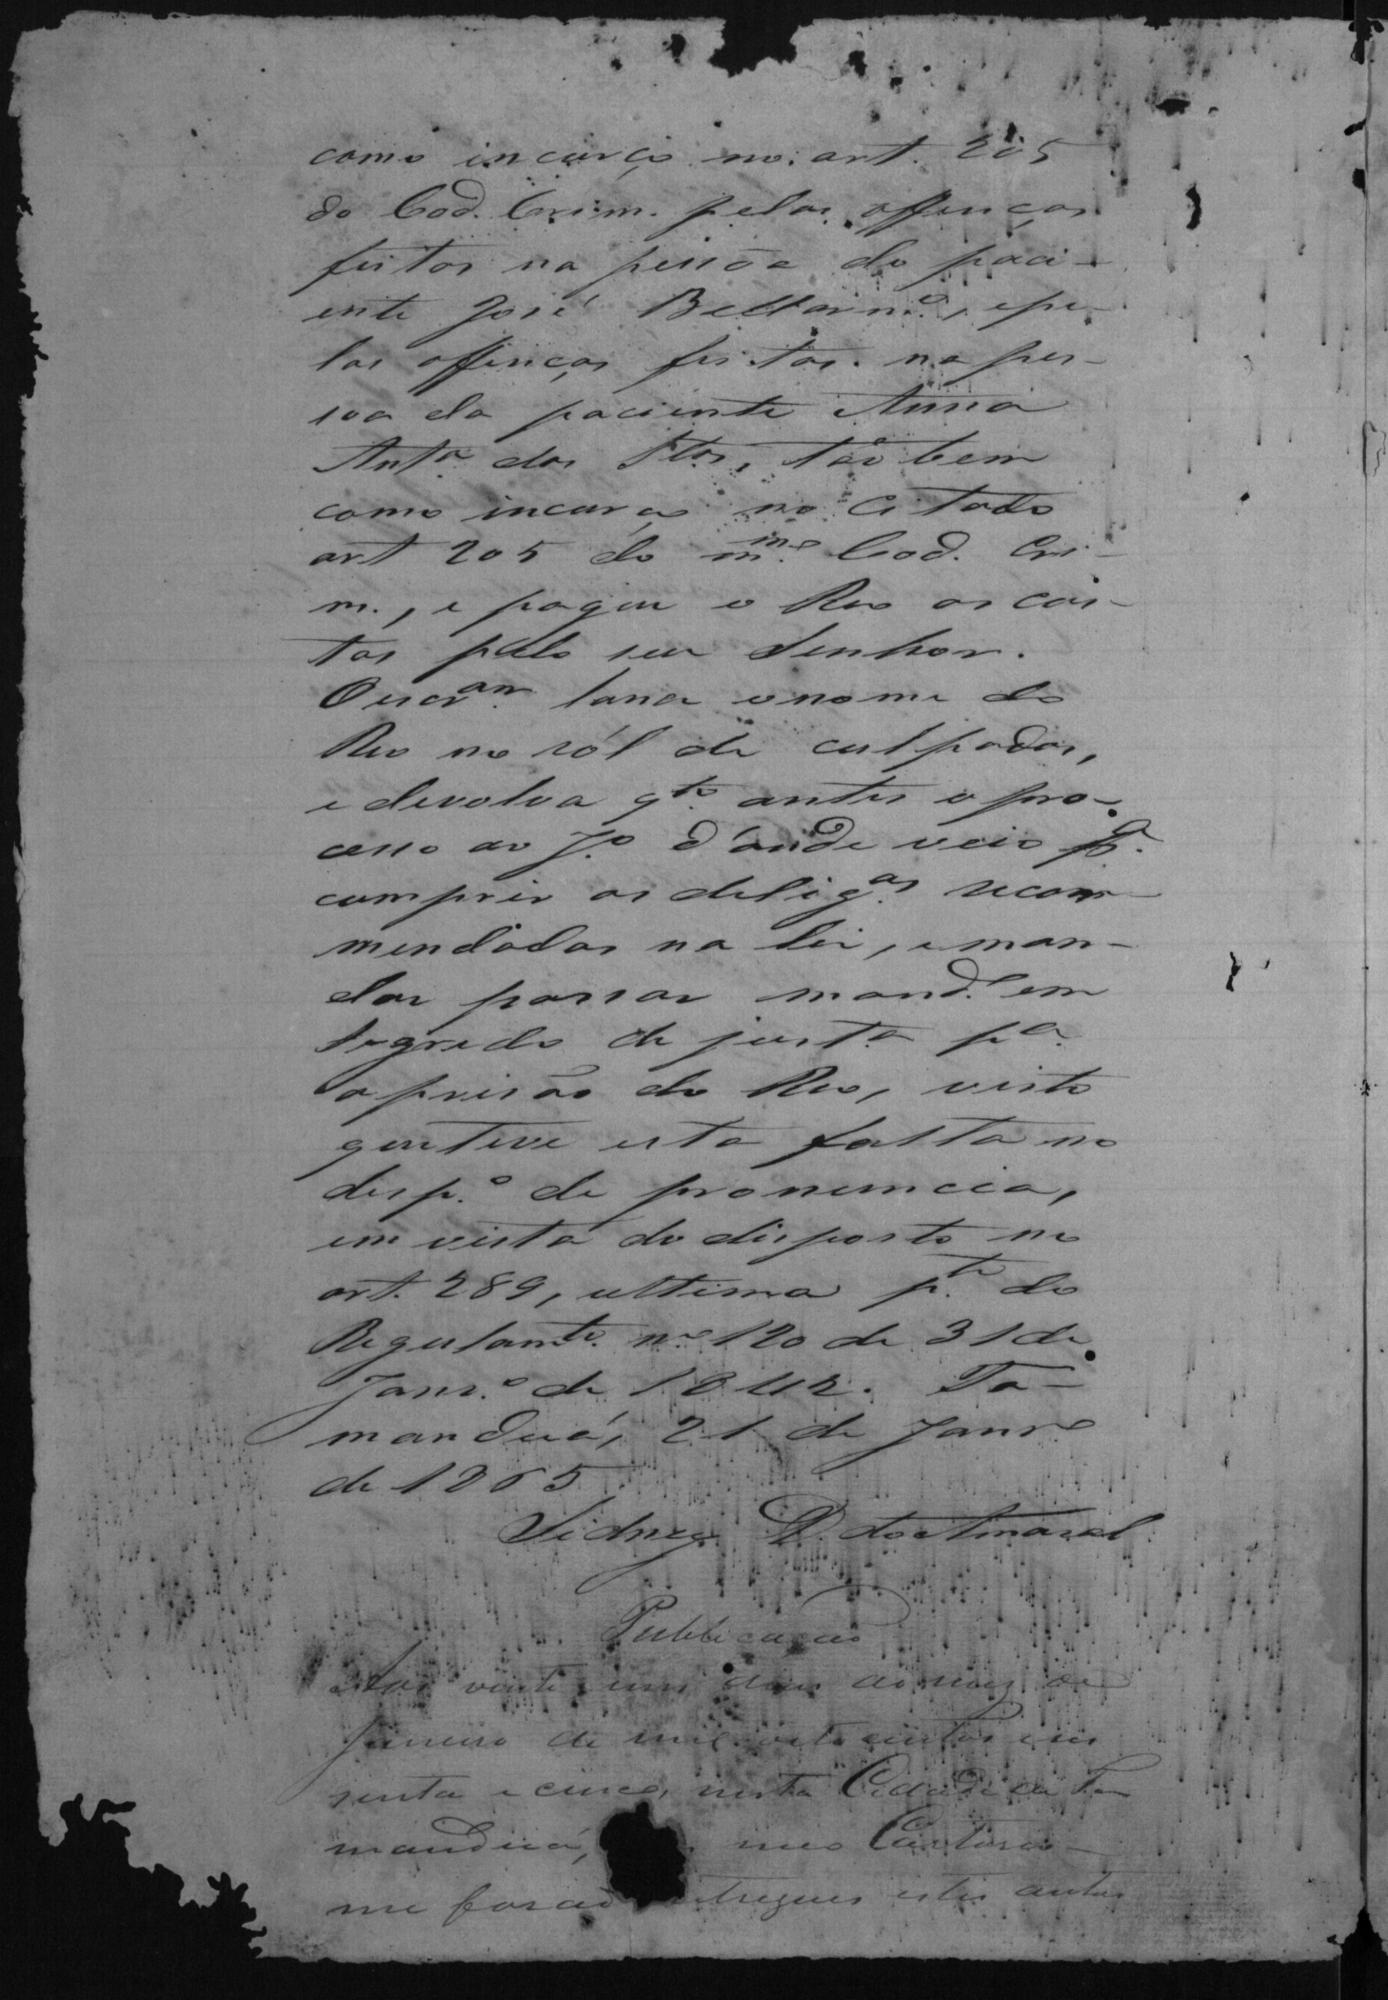 como incurço no art. 205
do Cod. Crim. pelas offenças
feitas na pessôa do paci-
ente José Bellarm.º, e pe-
las offenças feitas na pes-
soa da paciente Anna
Ant.ª dos S.tos, tão bem
como incurço no citado
art 205 do m.mo Cod. Cri-
m., e pague o Reo as cus-
tas pelo seu Senhor.
O escr.am lance o nome do
Reo no ról de culpados,
e devolva q.to antes o pro-
cesso ao J.º d'ónde veio p.ª
cumprir as delig.as recom-
mendadas na lei, e man-
dar passar mand.º em
segredo de just.ª p.ª
a prisão do Reo, visto
que teve esta falta no
desp.º de pronuncia,
em vista do disposto no
art. 289, ultima p.te do
Regulam.to nº 120 de 31 de
Janr.º de 1842. Ta-
manduá, 21 de Janrº
de 1865
Sidney D. do Amaral
Publicação
Aos vinte um dias do mez de
Janeiro de mil oito centos e ses
senta e cinco, nesta Cidade de Ta
manduá, meo Cartorio
me forão tregues estes autos